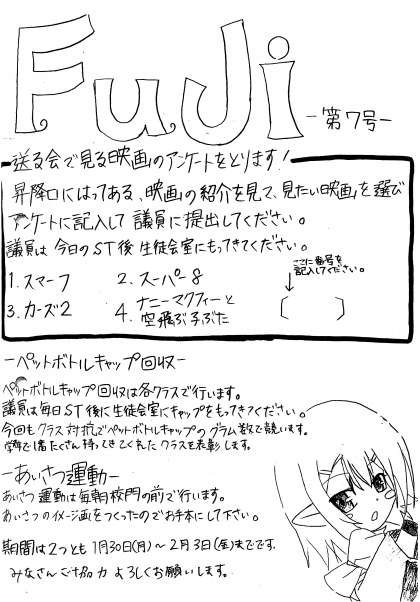 FuJi
-第7号-
送る会で見る映画のアンケートをとります!
昇降口にはってある、映画の紹介を見て、見たい映画を選び
アンケートに記入して議員に提出してください。
議員は今日のST後生徒会室にもってきてください。
ここに番号を
記入してください。
1.スマーフ 2.スーパー8
3.カーズ2 4.ナニーマクフィーと
空飛ぶ子ぶた
-ペットボトルキャップ回収-
ペットボトルキャップ回収は各クラスで行います。
議員は毎日ST後に生徒会室にキャップをもってきてください。
今回もクラス対抗でペットボトルキャップのグラム数で競います。
学年で1番たくさん持ってきてくれたクラスを表彰します。
-あいさつ運動-
あいさつ運動は毎朝校門の前で行います。
あいさつのイメージ画をつくったのでお手本にして下さい。
期間は2つとも1月30日(月)〜2月3日(金)までです。
みなさんご協力よろしくお願いします。